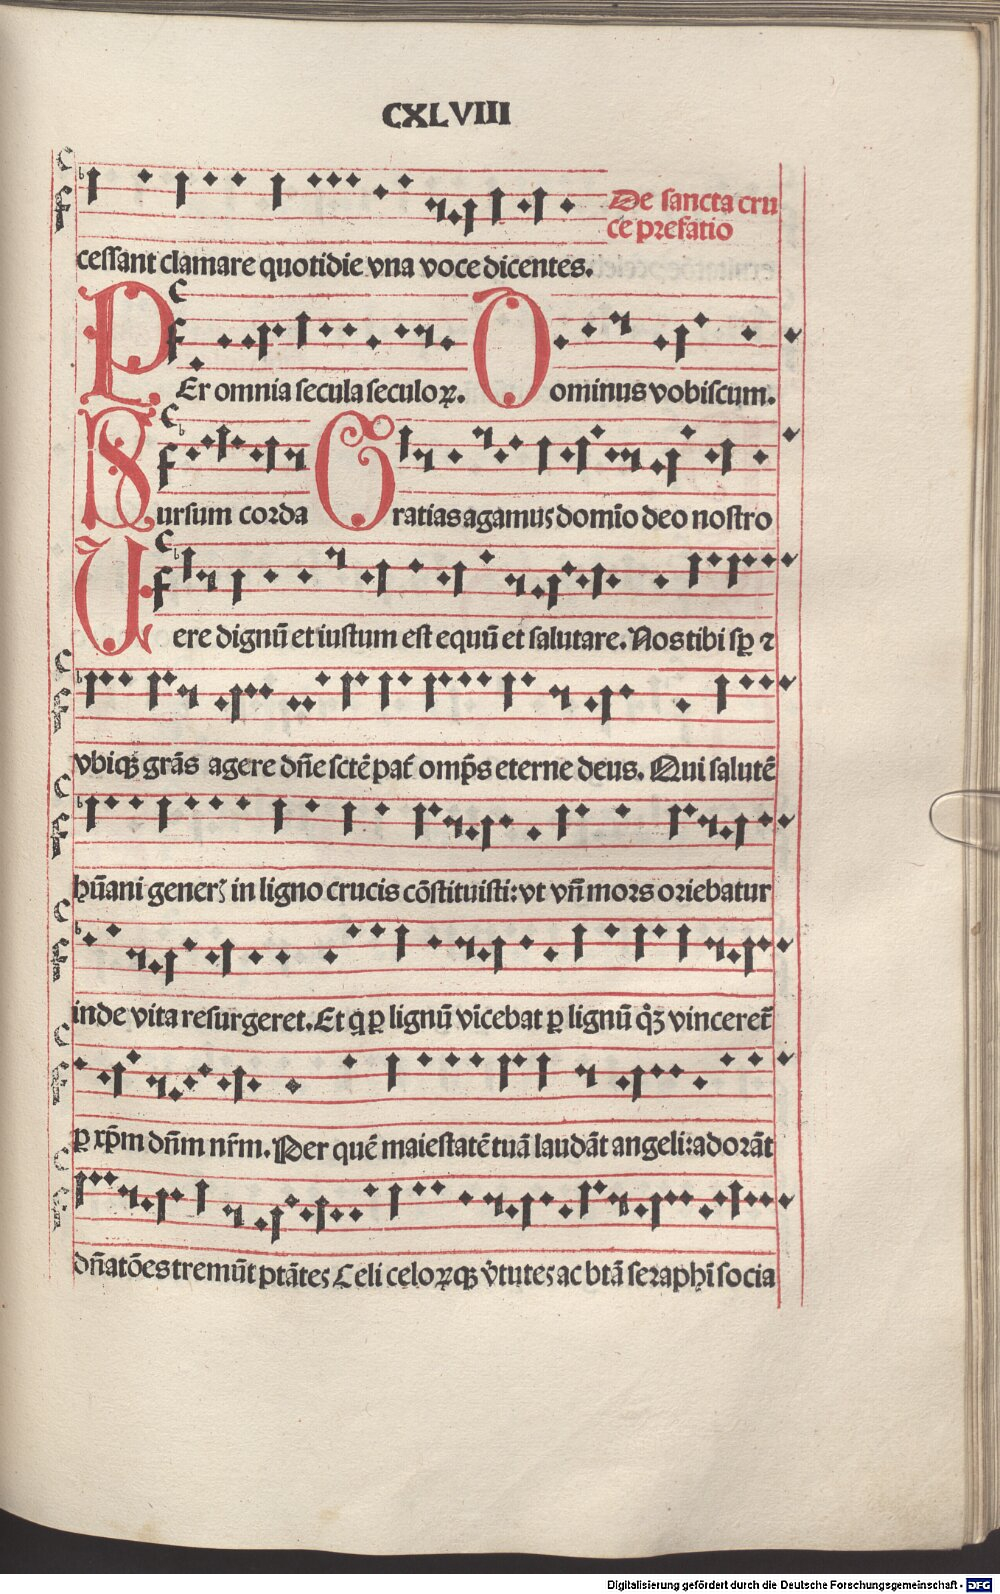 CXLVIII
De sancta cru
ce prefatio
cessant clamare quotidie vna voce dicentes.
PEr omnia secula seculoꝝ. Dominus vobiscum.
Sursum corda Gratias agamus domīo deo nostro
Uere dignū et iustum est equū et salutare. Nos tibi sꝑ ⁊
vbiqꝫ grās agere dn̄e sctē pat̄ omp̄s eterne deus. Qui salutē
hūani generꝭ in ligno crucis cōstituisti: vt vn̄ mors oriebatur
inde vita resurgeret. Et q ꝑ lignū vīcebat ꝑ lignū qͦꝫ vinceret̄
ꝑ xp̄m dn̄m nr̄m. Per quē maiestatē tuā laudāt angeli: adorāt
dn̄atōes tremūt ptātes Celi celoꝝqꝫ v̾tutes ac btā seraphī socia
Digitalisierung gefördert durch die Deutsche Forschungsgemeinschaft - DFG